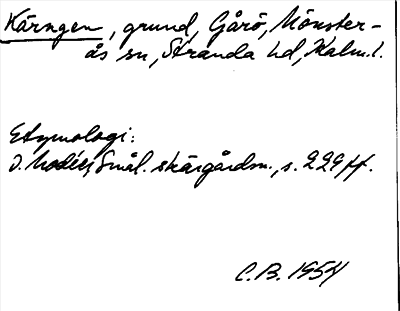 Kärngen, grund, Gårö, Mönster-
ås sn, Stranda hd, Kalm.l.
Etymologi:
J. Modéer, Smål. skärgårdsn., s. 229 ff.
C.B. 1954